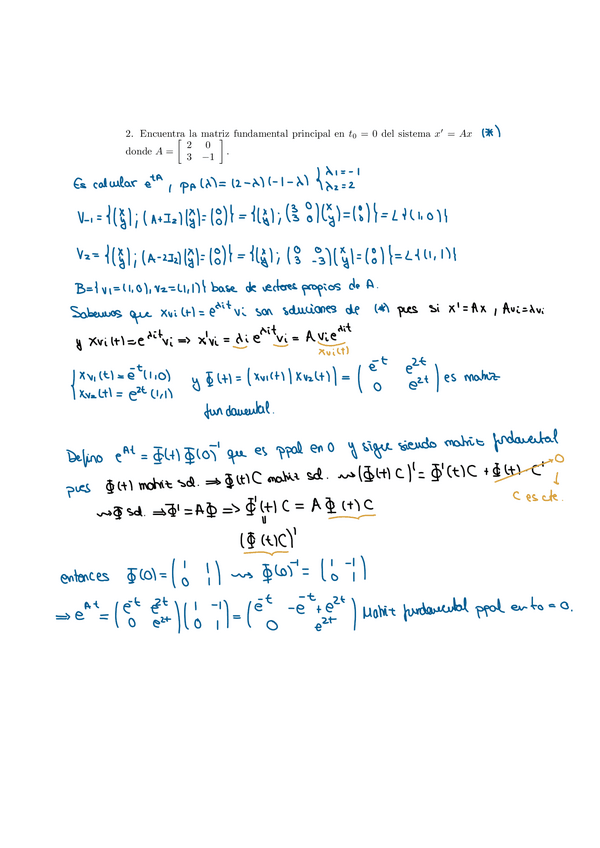 2. Encuentra la matriz fundamental principal en t₀ = 0 del sistema x' = Ax (*)
donde A = [ 2 0 ; 3 −1 ].
Es calcular e^{tA}, p_A(λ) = (2-λ)(-1-λ) { λ₁=-1 ; λ₂=2
V₋₁ = {(x y); (A+I₂)(x y) = (0 0)} = {(x y); (3 0 ; 3 0)(x y) = (0 0)} = L{(1,0)}
V₂ = {(x y); (A-2I₂)(x y) = (0 0)} = {(x y); (0 0 ; 3 -3)(x y) = (0 0)} = L{(1,1)}
B={v₁=(1,0), v₂=(1,1)} base de vectores propios de A.
Sabemos que x_{vi}(t) = e^{λit} vi son soluciones de (*) pues si x'=Ax, Avi=λvi
y x_{vi}(t)=e^{λit}vi ⇒ x'vi = λi e^{λit} vi = A vi e^{λit}
x_{vi}(t)
{ x_{v1}(t) = e^{-t}(1,0) ; x_{v2}(t) = e^{2t}(1,1) y Φ(t) = (x_{v1}(t) | x_{v2}(t)) = ( e^{-t} e^{2t} ; 0 e^{2t} ) es matriz
fundamental.
Defino e^{At} = Φ(t) Φ(0)^{-1} que es ppal en 0 y sigue siendo matriz fundamental
pues Φ(t) matriz sol. ⇒ Φ(t)C matriz sol. ⇝ (Φ(t)C)' = Φ'(t)C + Φ(t) C' → 0
C es cte.
⇝ Φ sol. ⇒ Φ' = AΦ ⇒ Φ'(t)C = A Φ(t)C
||
(Φ(t)C)'
entonces Φ(0) = ( 1 1 ; 0 1 ) ⇝ Φ(0)^{-1} = ( 1 -1 ; 0 1 )
⇒ e^{At} = ( e^{-t} e^{2t} ; 0 e^{2t} )( 1 -1 ; 0 1 ) = ( e^{-t} -e^{-t}+e^{2t} ; 0 e^{2t} ) Matriz fundamental ppal en t₀ = 0.